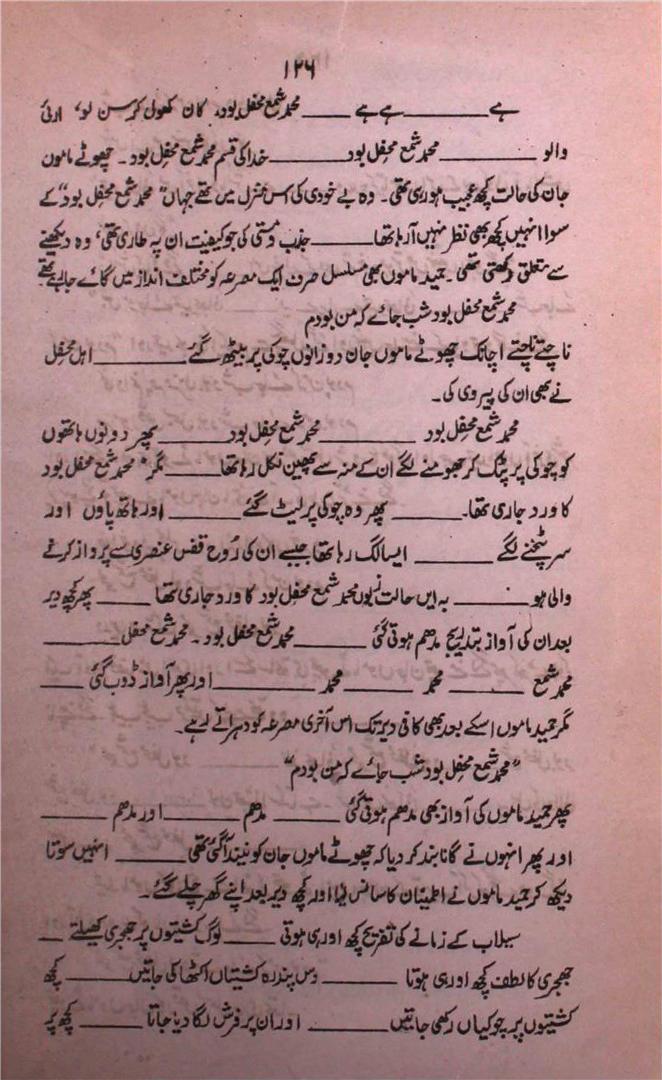 ۱۲۶
ہے ــــــــ ہے ہے ــــــــ محمد شمع محفل بود، کان کھول کر سن لو، ارئی
والو ــــــــ محمد شمع محفل بود ــــــــ خدا کی قسم محمد شمع محفل بود۔ چھوٹے ماموں
جان کی حالت کچھ عجیب ہو رہی تھی۔ وہ بے خودی کی اس منزل میں تھے جہاں "محمد شمع محفل بود" کے
سوا انہیں کچھ بھی نظر نہیں آرہا تھا ــــــــ جذب و مستی کی جو کیفیت ان پہ طاری تھی، وہ دیکھنے
سے متعلق رکھتی تھی۔ حمید ماموں بھی مسلسل صرف ایک مصرعہ کو مختلف انداز میں گائے جا رہے تھے
محمد شمع محفل بود شب جائے کہ من بودم
ناچتے ناچتے اچانک چھوٹے ماموں جان دو زانوں چوکی پر بیٹھ گئے ــــــــ اہل محفل
نے بھی ان کی پیروی کی۔
محمد شمع محفل بود ــــــــ محمد شمع محفل بود ــــــــ پھر دونوں ہاتھوں
کو چوکی پر پٹک کر جھومنے لگے ان کے منہ سے پھین نکل رہا تھا ــــــــ مگر "محمد شمع محفل بود
کا ورد جاری تھا۔ ــــــــ پھر وہ چوکی پر لیٹ گئے ــــــــ اور ہاتھ پاؤں اور
سر پٹخنے لگے ــــــــ ایسا لگ رہا تھا جیسے ان کی رُوح قفس عنصری سے پرواز کرنے
والی ہو ــــــــ بہ ایں حالت زبوں محمد شمع محفل بود کا ورد جاری تھا ــــــــ پھر کچھ دیر
بعد ان کی آواز بتدریج مدھم ہوتی گئی ــــــــ محمد شمع محفل بود۔ محمد شمع محفل ــــــــ
محمد شمع ــــــــ محمد ــــــــ محمد ــــــــ اور پھر آواز ڈوب گئی ــــــــ
مگر حمید ماموں اسکے بعد بھی کافی دیر تک اس آخری مصرعہ کو دہراتے رہے۔
"محمد شمع محفل بود شب جائے کہ من بودم"
پھر حمید ماموں کی آواز بھی مدھم ہوتی گئی ــــــــ مدھم ــــــــ اور مدھم ــــــــ
اور پھر انہوں نے گانا بند کر دیا کہ چھوٹے ماموں جان کو نیند آگئی تھی ــــــــ انہیں سوتا
دیکھ کر حمید ماموں نے اطمینان کا سانس لیا اور کچھ دیر بعد اپنے گھر چلے گئے۔
سیلاب کے زمانے کی تفریح کچھ اور ہی ہوتی ــــــــ لوگ کشتیوں پر جھجری کھیلتے ــــــــ
جھجری کا لطف کچھ اور ہی ہوتا ــــــــ دس پندرہ کشتیاں اکٹھا کی جاتیں ــــــــ کچھ
کشتیوں پر چوکیاں رکھی جاتیں ــــــــ اور ان پر فرش لگا دیا جاتا ــــــــ کچھ پر